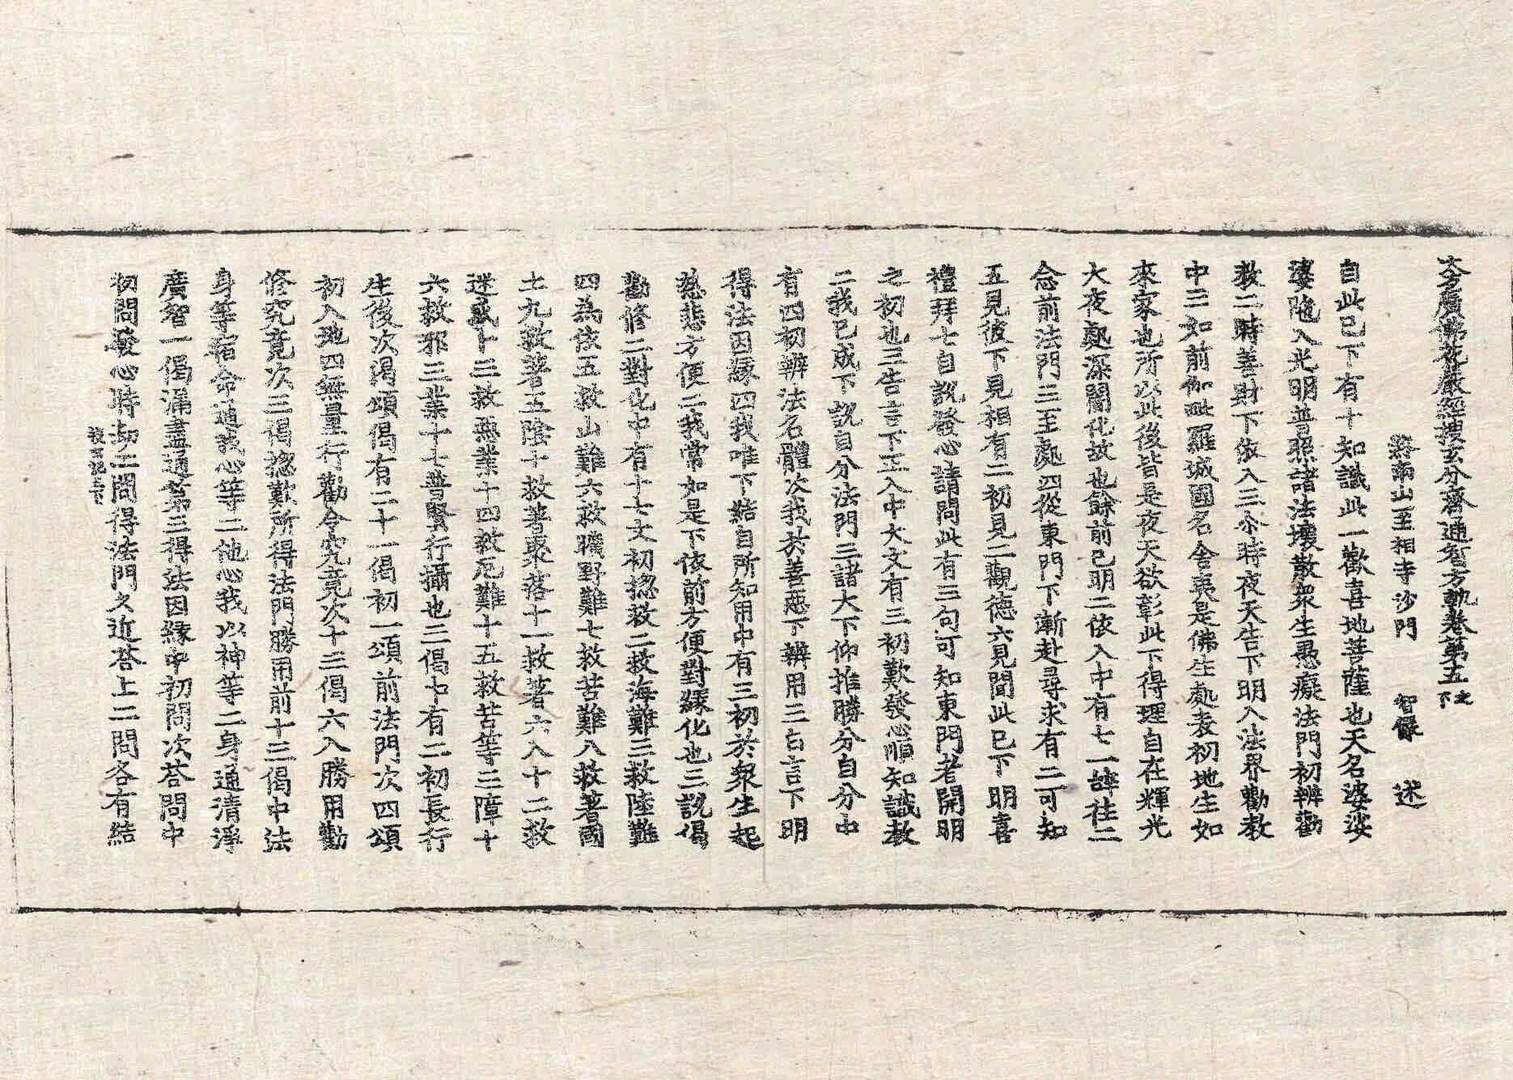 大方廣佛花嚴經搜玄分齊通智方軌卷第五之下
終南山至相寺沙門 智儼 述
自此已下有十知識此一歡喜地菩薩也天名婆娑
婆陁入光明普照諸法壞散衆生愚癡法門初辨勸
教二時善財下依入三尒時夜天告下明入法界勸教
中三如前伽毗羅城國名舍夷是佛生處表初地生如
來家也所以此後皆是夜天欲彰此下得理自在輝光
大夜處深闇化故也餘前已明二依入中有七一辭往二
念前法門三至處四從東門下漸赴尋求有二可知
五見彼下見相有二初見二觀德六見聞此已下明喜
禮拜七自說發心請問此有三句可知東門者開明
之初也三告言下正入中大文有三初歎發心順知識教
二我已成下說自分法門三諸大下仰推勝分自分中
有四初辨法名體次我於善惡下辨用三白言下明
得法因緣四我唯下結自所知用中有三初於衆生起
慈悲方便二我常如是下依前方便對緣化也三說偈
勸修二對化中有十七文初捴救二救海難三救陸難
四為依五救山難六救曠野難七救苦難八救著國
土九救著五陰十救著聚落十一救著六入十二救
迷惑十三救惡業十四救死難十五救苦等三障十
六救邪三業十七普賢行攝也三偈中有二初長行
生後次渴頌偈有二十一偈初一頌前法門次四頌
初入地四無量行勸令究竟次十三偈六入勝用勸
修究竟次三偈捴歎所得法門勝用前十三偈中法
身等宿命通或心等二他心我以神等二身通清淨
廣智一偈漏盡通第三得法因緣中初問次荅問中
初問發心時劫二問得法門久近荅上二問各有結